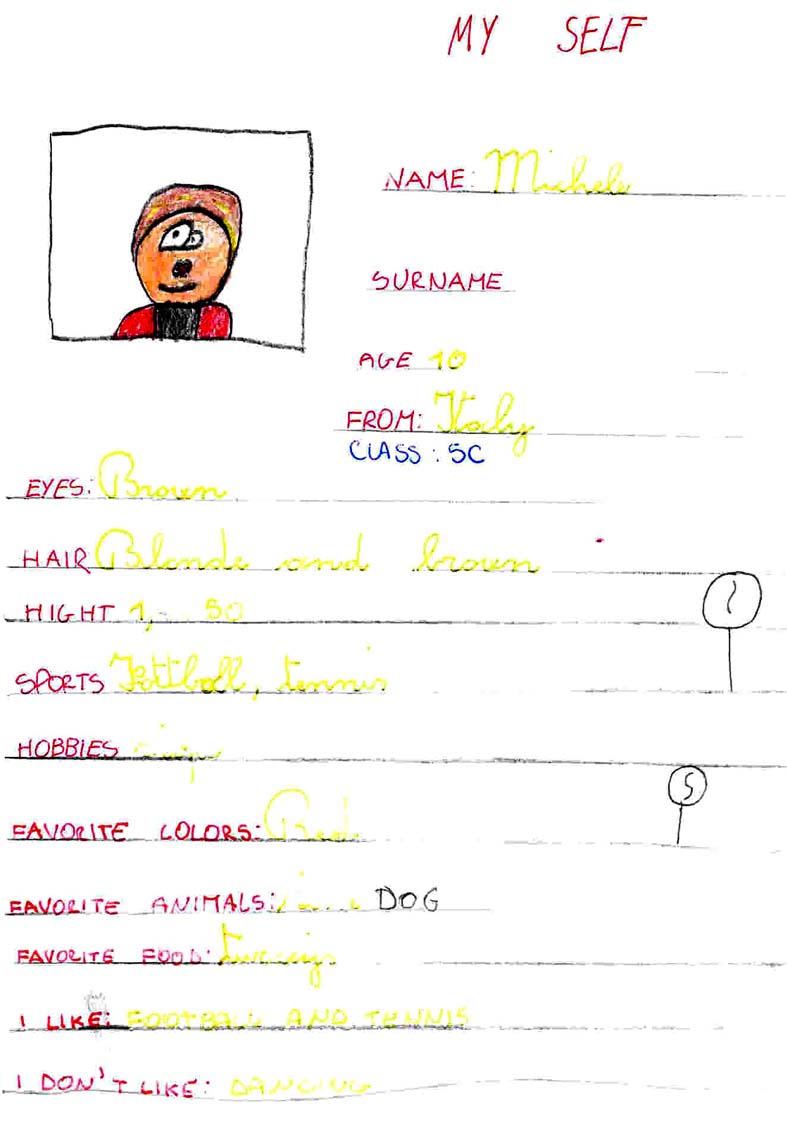 MY SELF
NAME: Michele
SURNAME
AGE 10
FROM: Italy
CLASS: 5C
EYES: Brown
HAIR Blonde and brown
HIGHT 1, 50
SPORTS Fottball, tennis
HOBBIES
FAVORITE COLORS: Red
FAVORITE ANIMALS: DOG
FAVORITE FOOD:
I LIKE: FOOTBALL AND TENNIS
I DON'T LIKE: DANCING